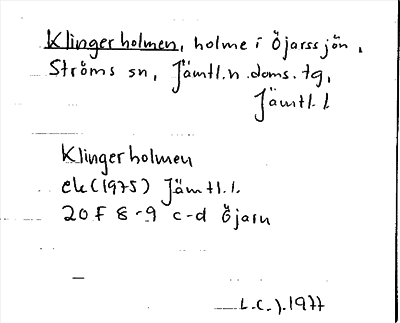 Klingerholmen, holme i Öjarssjön,
Ströms sn, Jämtl.n.doms.tg,
Jämtl.l
Klingerholmen
ek(1975) Jämtl.l.
20F 8-9 c-d Öjarn
L.C.J.1977